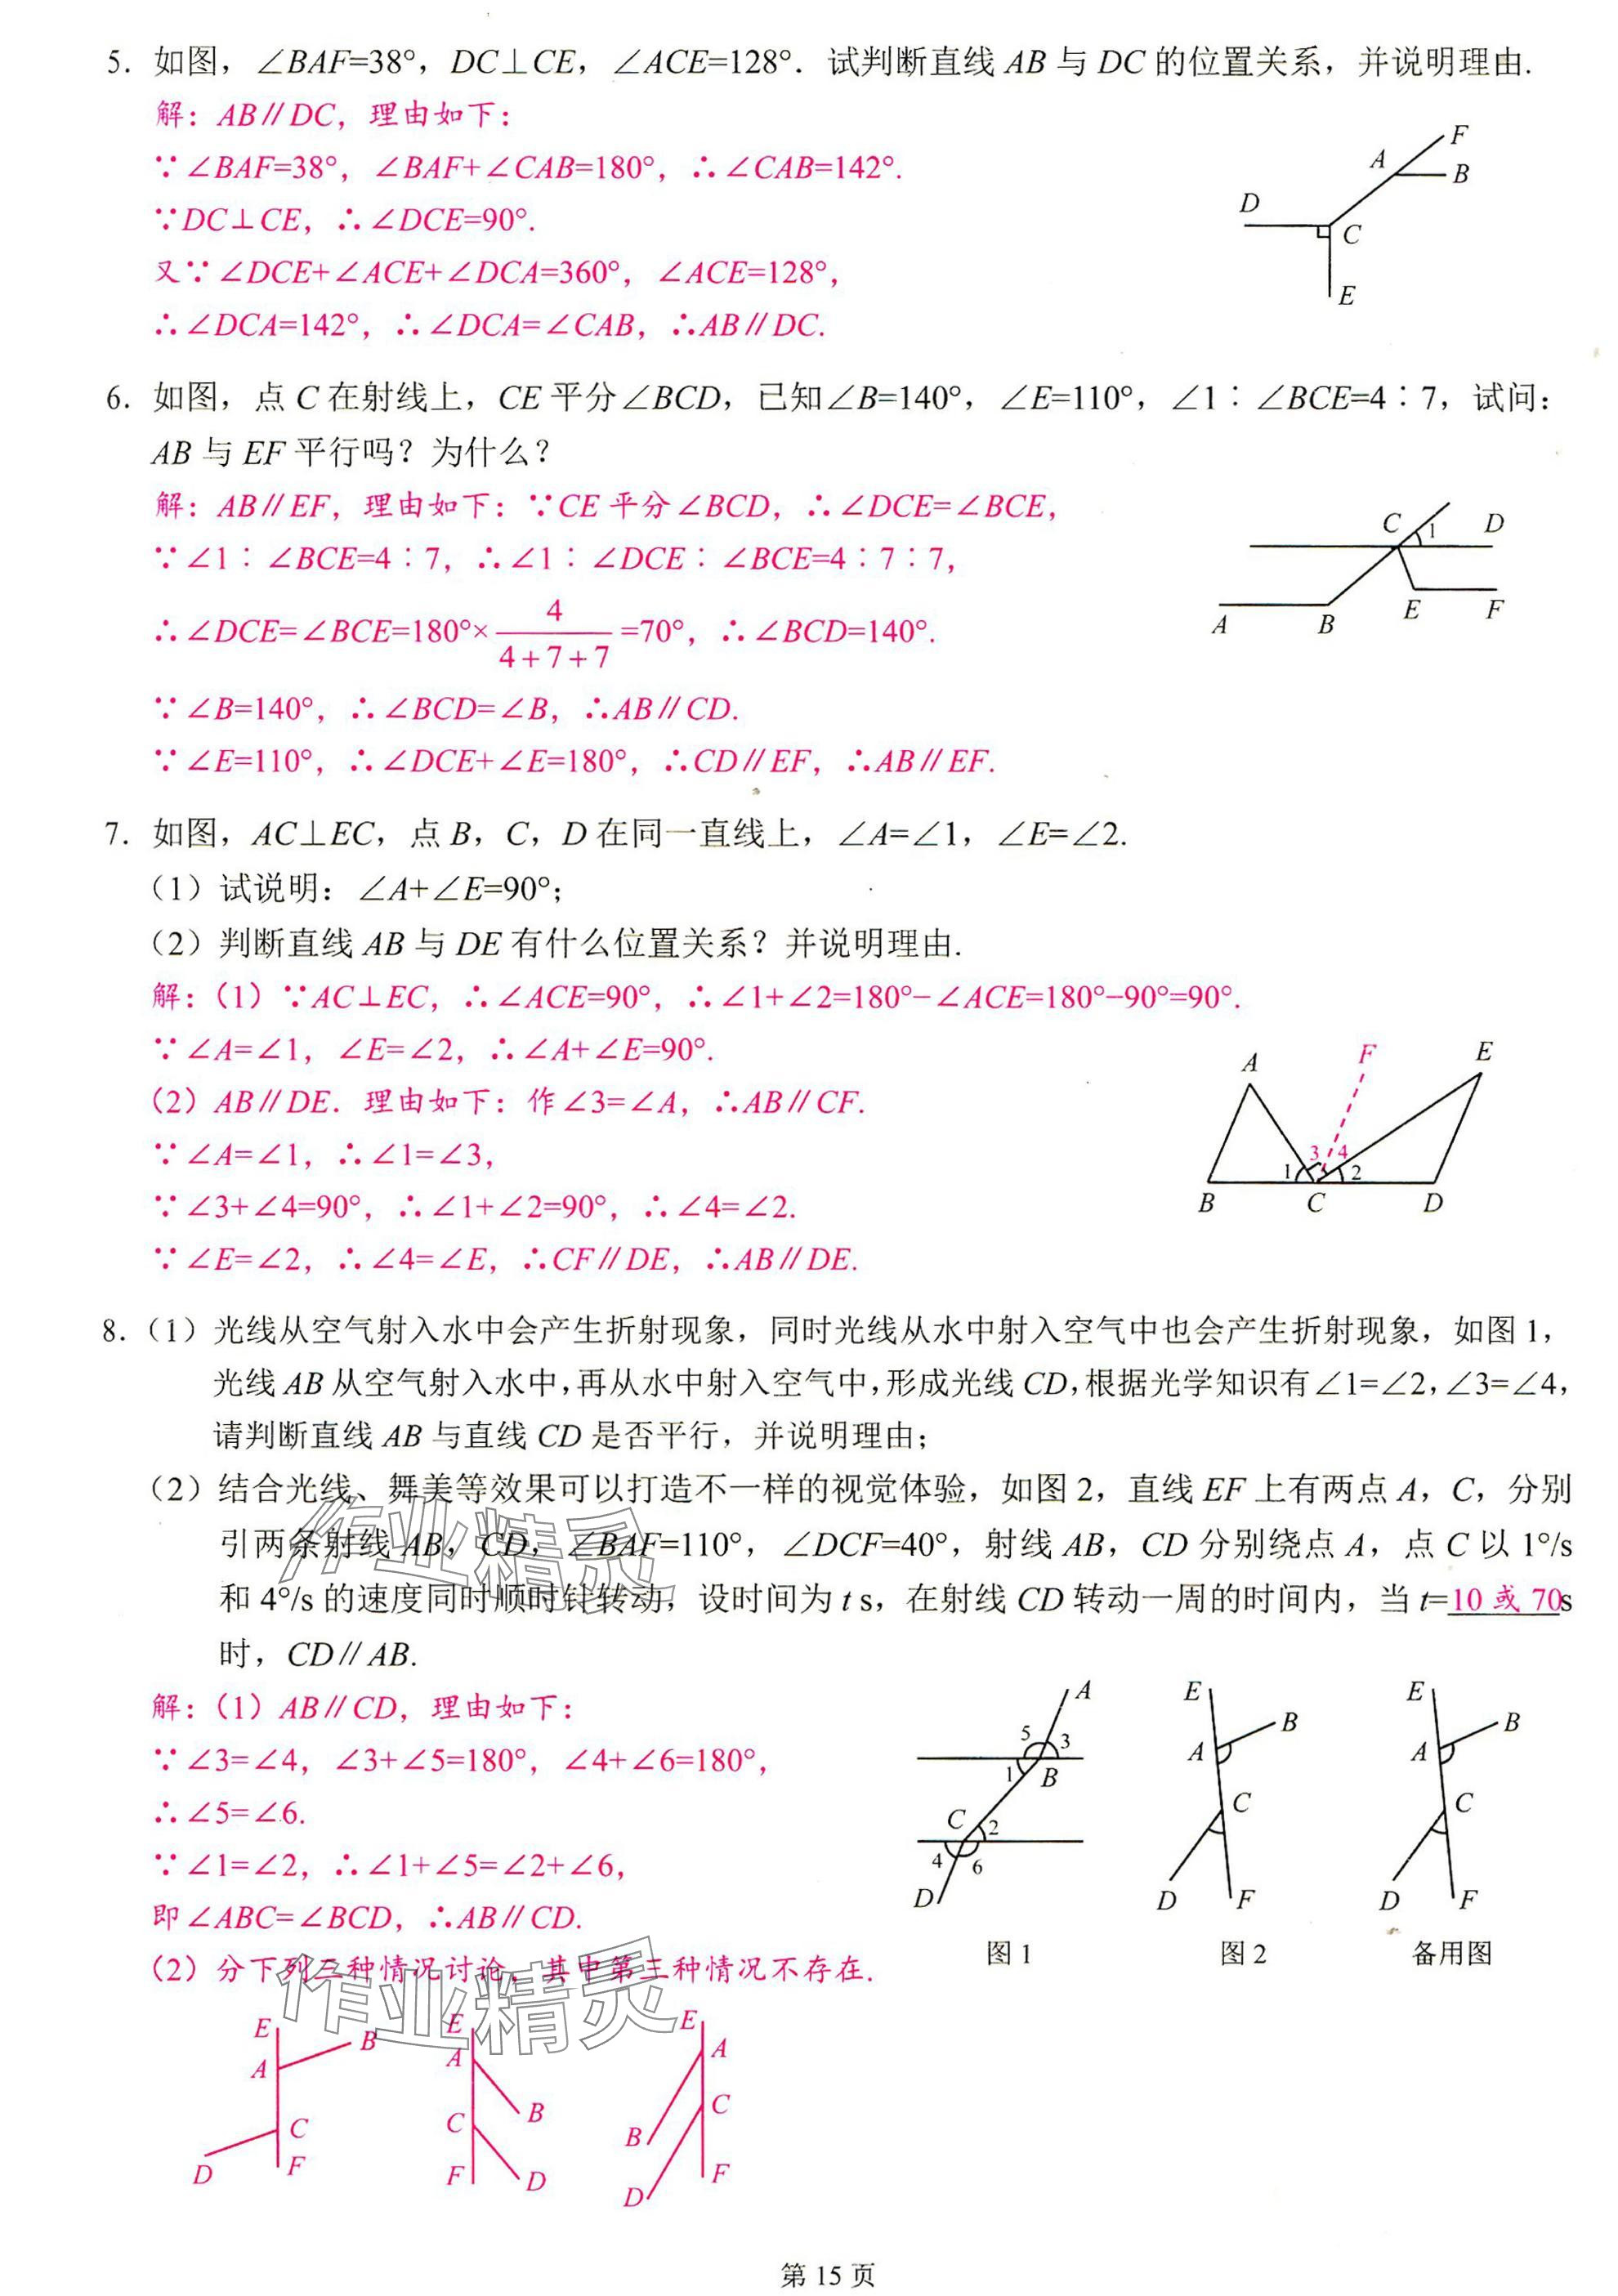 5. 如图，∠BAF=38°，DC⊥CE，∠ACE=128°．试判断直线 AB 与 DC 的位置关系，并说明理由.
解：AB∥DC，理由如下：
∵∠BAF=38°，∠BAF+∠CAB=180°，∴∠CAB=142°.
∵DC⊥CE，∴∠DCE=90°.
又∵∠DCE+∠ACE+∠DCA=360°，∠ACE=128°，
∴∠DCA=142°，∴∠DCA=∠CAB，∴AB∥DC.
F
A
B
D
C
E
6. 如图，点 C 在射线上，CE 平分∠BCD，已知∠B=140°，∠E=110°，∠1∶∠BCE=4∶7，试问：
AB 与 EF 平行吗？为什么？
解：AB∥EF，理由如下：∵CE 平分∠BCD，∴∠DCE=∠BCE，
∵∠1∶∠BCE=4∶7，∴∠1∶∠DCE∶∠BCE=4∶7∶7，
∴∠DCE=∠BCE=180°× 4/(4+7+7) =70°，∴∠BCD=140°.
∵∠B=140°，∴∠BCD=∠B，∴AB∥CD.
∵∠E=110°，∴∠DCE+∠E=180°，∴CD∥EF，∴AB∥EF.
C 1 D
A B E F
7. 如图，AC⊥EC，点 B，C，D 在同一直线上，∠A=∠1，∠E=∠2.
（1）试说明：∠A+∠E=90°；
（2）判断直线 AB 与 DE 有什么位置关系？并说明理由.
解：（1）∵AC⊥EC，∴∠ACE=90°，∴∠1+∠2=180°−∠ACE=180°−90°=90°.
∵∠A=∠1，∠E=∠2，∴∠A+∠E=90°.
（2）AB∥DE．理由如下：作∠3=∠A，∴AB∥CF.
∵∠A=∠1，∴∠1=∠3，
∵∠3+∠4=90°，∴∠1+∠2=90°，∴∠4=∠2.
∵∠E=∠2，∴∠4=∠E，∴CF∥DE，∴AB∥DE.
A F E
3 4
1 2
B C D
8.（1）光线从空气射入水中会产生折射现象，同时光线从水中射入空气中也会产生折射现象，如图 1，
光线 AB 从空气射入水中，再从水中射入空气中，形成光线 CD，根据光学知识有∠1=∠2，∠3=∠4，
请判断直线 AB 与直线 CD 是否平行，并说明理由；
（2）结合光线、舞美等效果可以打造不一样的视觉体验，如图 2，直线 EF 上有两点 A，C，分别
引两条射线 AB，CD，∠BAF=110°，∠DCF=40°，射线 AB，CD 分别绕点 A，点 C 以 1°/s
和 4°/s 的速度同时顺时针转动，设时间为 t s，在射线 CD 转动一周的时间内，当 t=10 或 70s
时，CD∥AB.
作业精灵
解：（1）AB∥CD，理由如下：
∵∠3=∠4，∠3+∠5=180°，∠4+∠6=180°，
∴∠5=∠6.
∵∠1=∠2，∴∠1+∠5=∠2+∠6，
即∠ABC=∠BCD，∴AB∥CD.
（2）分下列三种情况讨论，其中第三种情况不存在.
A
5 3
1 B
C 2
4 6
D
图 1
E
B
A
C
D F
图 2
E
B
A
C
D F
备用图
作业精灵
E
B
A
C
D F
E
A
B
C
F D
E
A
C
B
F
D
第 15 页